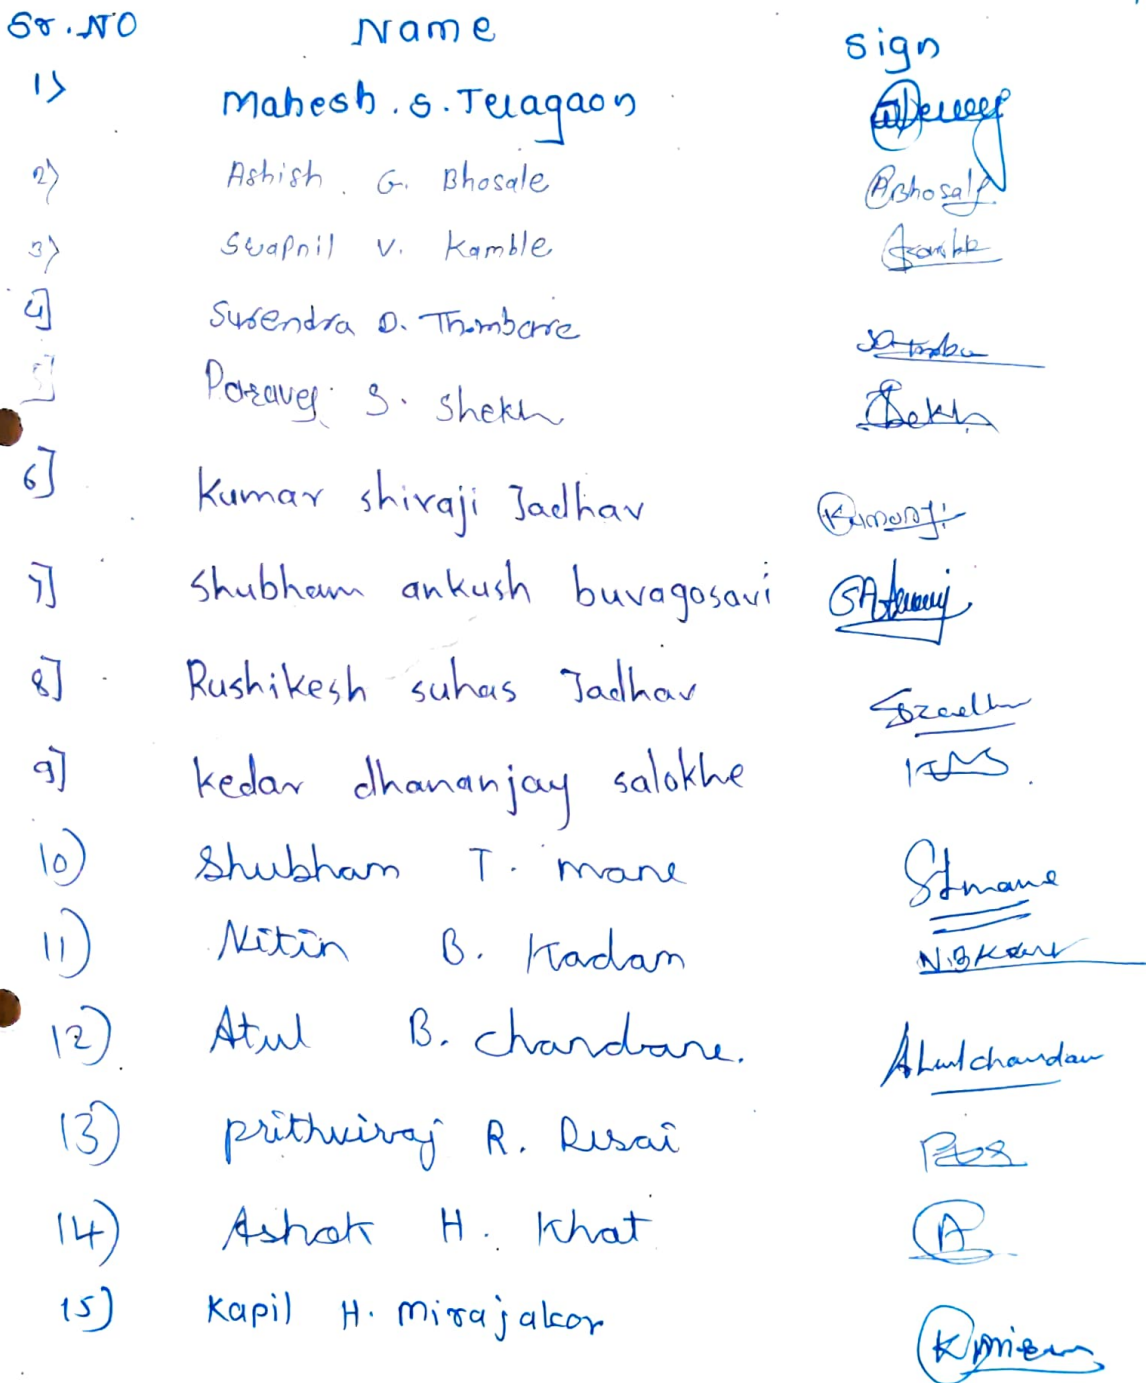 Sr. NO Name Sign
1) Mahesh. S. Telagaon
2) Ashish. G. Bhosale ABhosale
3) Swapnil V. Kamble Kamble
4] Surendra D. Thombare
5] Paravej S. Shekh Shekh
6] Kumar shivaji Jadhav
7] Shubham ankush buvagosavi
8] Rushikesh suhas Jadhav
9] kedar dhananjay salokhe
10) Shubham T. mane Stmane
11) Nitin B. Kadam
12) Atul B. chandane.
13) prithviraj R. Desai
14) Ashok H. Khat A
15) Kapil H. Mirajakar